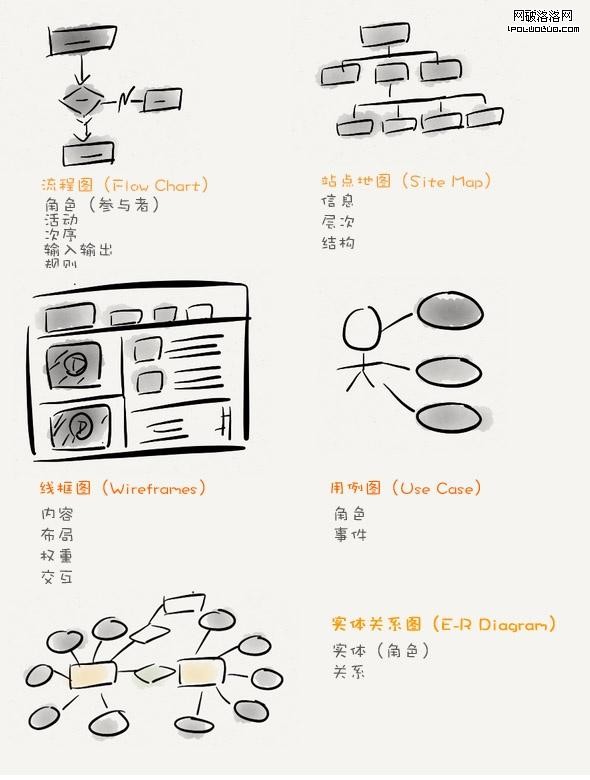 网破落落网
iPoLuoLuo.com
流程图（Flow Chart）
角色（参与者）
活动
次序
输入输出
规则
站点地图（Site Map）
信息
层次
结构
线框图（Wireframes）
内容
布局
权重
交互
用例图（Use Case）
角色
事件
实体关系图（E-R Diagram）
实体（角色）
关系